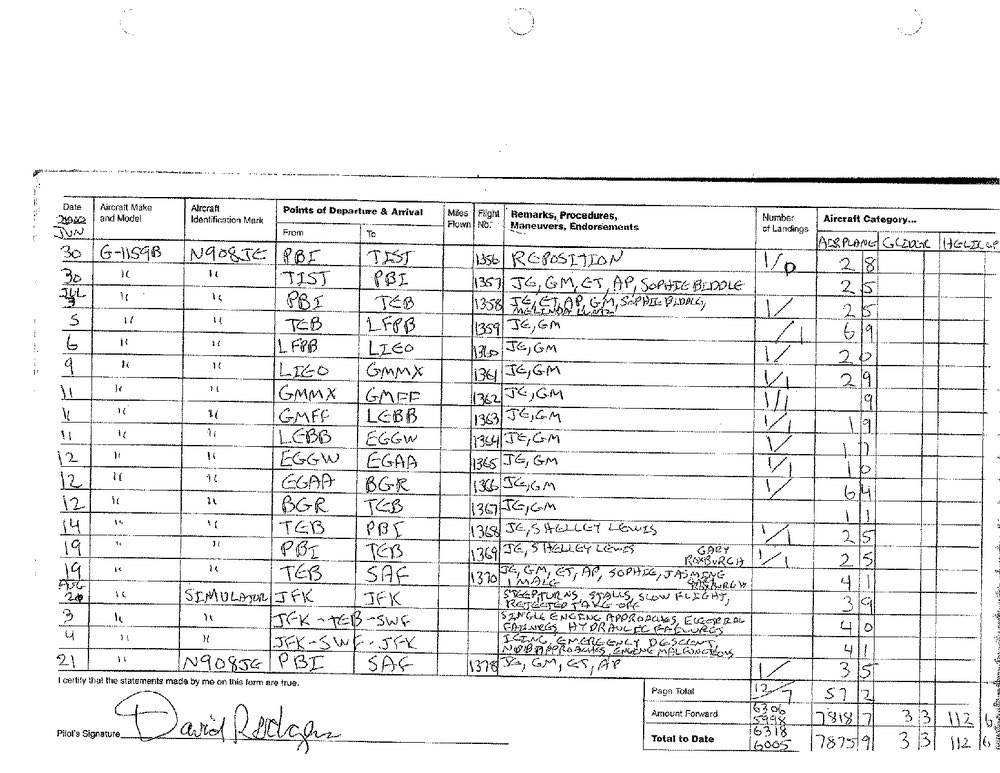 Date Aircraft Make and Model Aircraft Identification Mark Points of Departure & Arrival From To Miles Flown Flight No. Remarks, Procedures, Maneuvers, Endorsements Number of Landings Aircraft Category...
JUN AIRPLANE GLIDER HELICOP
30 G-1159B N908JE PBI TIST 1356 REPOSITION 1/0 2 8
30 " " TIST PBI 1357 JE, GM, ET, AP, SOPHIE BIDDLE 2 5
JUL 3 " " PBI TEB 1358 JE, ET, AP, GM, SOPHIE BIDDLE, 1/ 2 5
5 " " TEB LFPB 1359 JE, GM /1 6 9
6 " " LFPB LIEO 1360 JE, GM 1/ 2 0
9 " " LIEO GMMX 1361 JE, GM 1/1 2 9
11 " " GMMX GMFF 1362 JE, GM 1/1 9
11 " " GMFF LEBB 1363 JE, GM 1/1 1 9
11 " " LEBB EGGW 1364 JE, GM 1/ 1 7
12 " " EGGW EGAA 1365 JE, GM 1/1 1 0
12 " " EGAA BGR 1366 JE, GM 1/ 6 4
12 " " BGR TEB 1367 JE, GM 1 1
14 " " TEB PBI 1368 JE, SHELLEY LEWIS 1/1 2 5
19 " " PBI TEB 1369 JE, SHELLEY LEWIS GARY ROXBURGH 1/1 2 5
19 " " TEB SAF 1370 JE, GM, ET, AP, SOPHIE, JASMINE 1 MALE ROXBURGH 4 1
AUG " SIMULATOR JFK JFK STEEP TURNS, STALLS, SLOW FLIGHT, REJECTED TAKE OFF 3 9
3 " " JFK-TEB-SWF SINGLE ENGINE APPROACHES, ELECTRICAL FAILURES, HYDRAULIC FAILURES 4 0
4 " " JFK-SWF-JFK ICING, EMERGENCY DESCENT, APPROACHES, ENGINE MALFUNCTIONS 4 1
21 " N908JE PBI SAF 1378 JE, GM, ET, AP 1/ 3 5
I certify that the statements made by me on this form are true.
Page Total 12/7 57 2
Amount Forward 6306 5998 7818 7 3 3 112 6
Pilot's Signature David Rodgers
Total to Date 6318 6005 7875 9 3 3 112 6